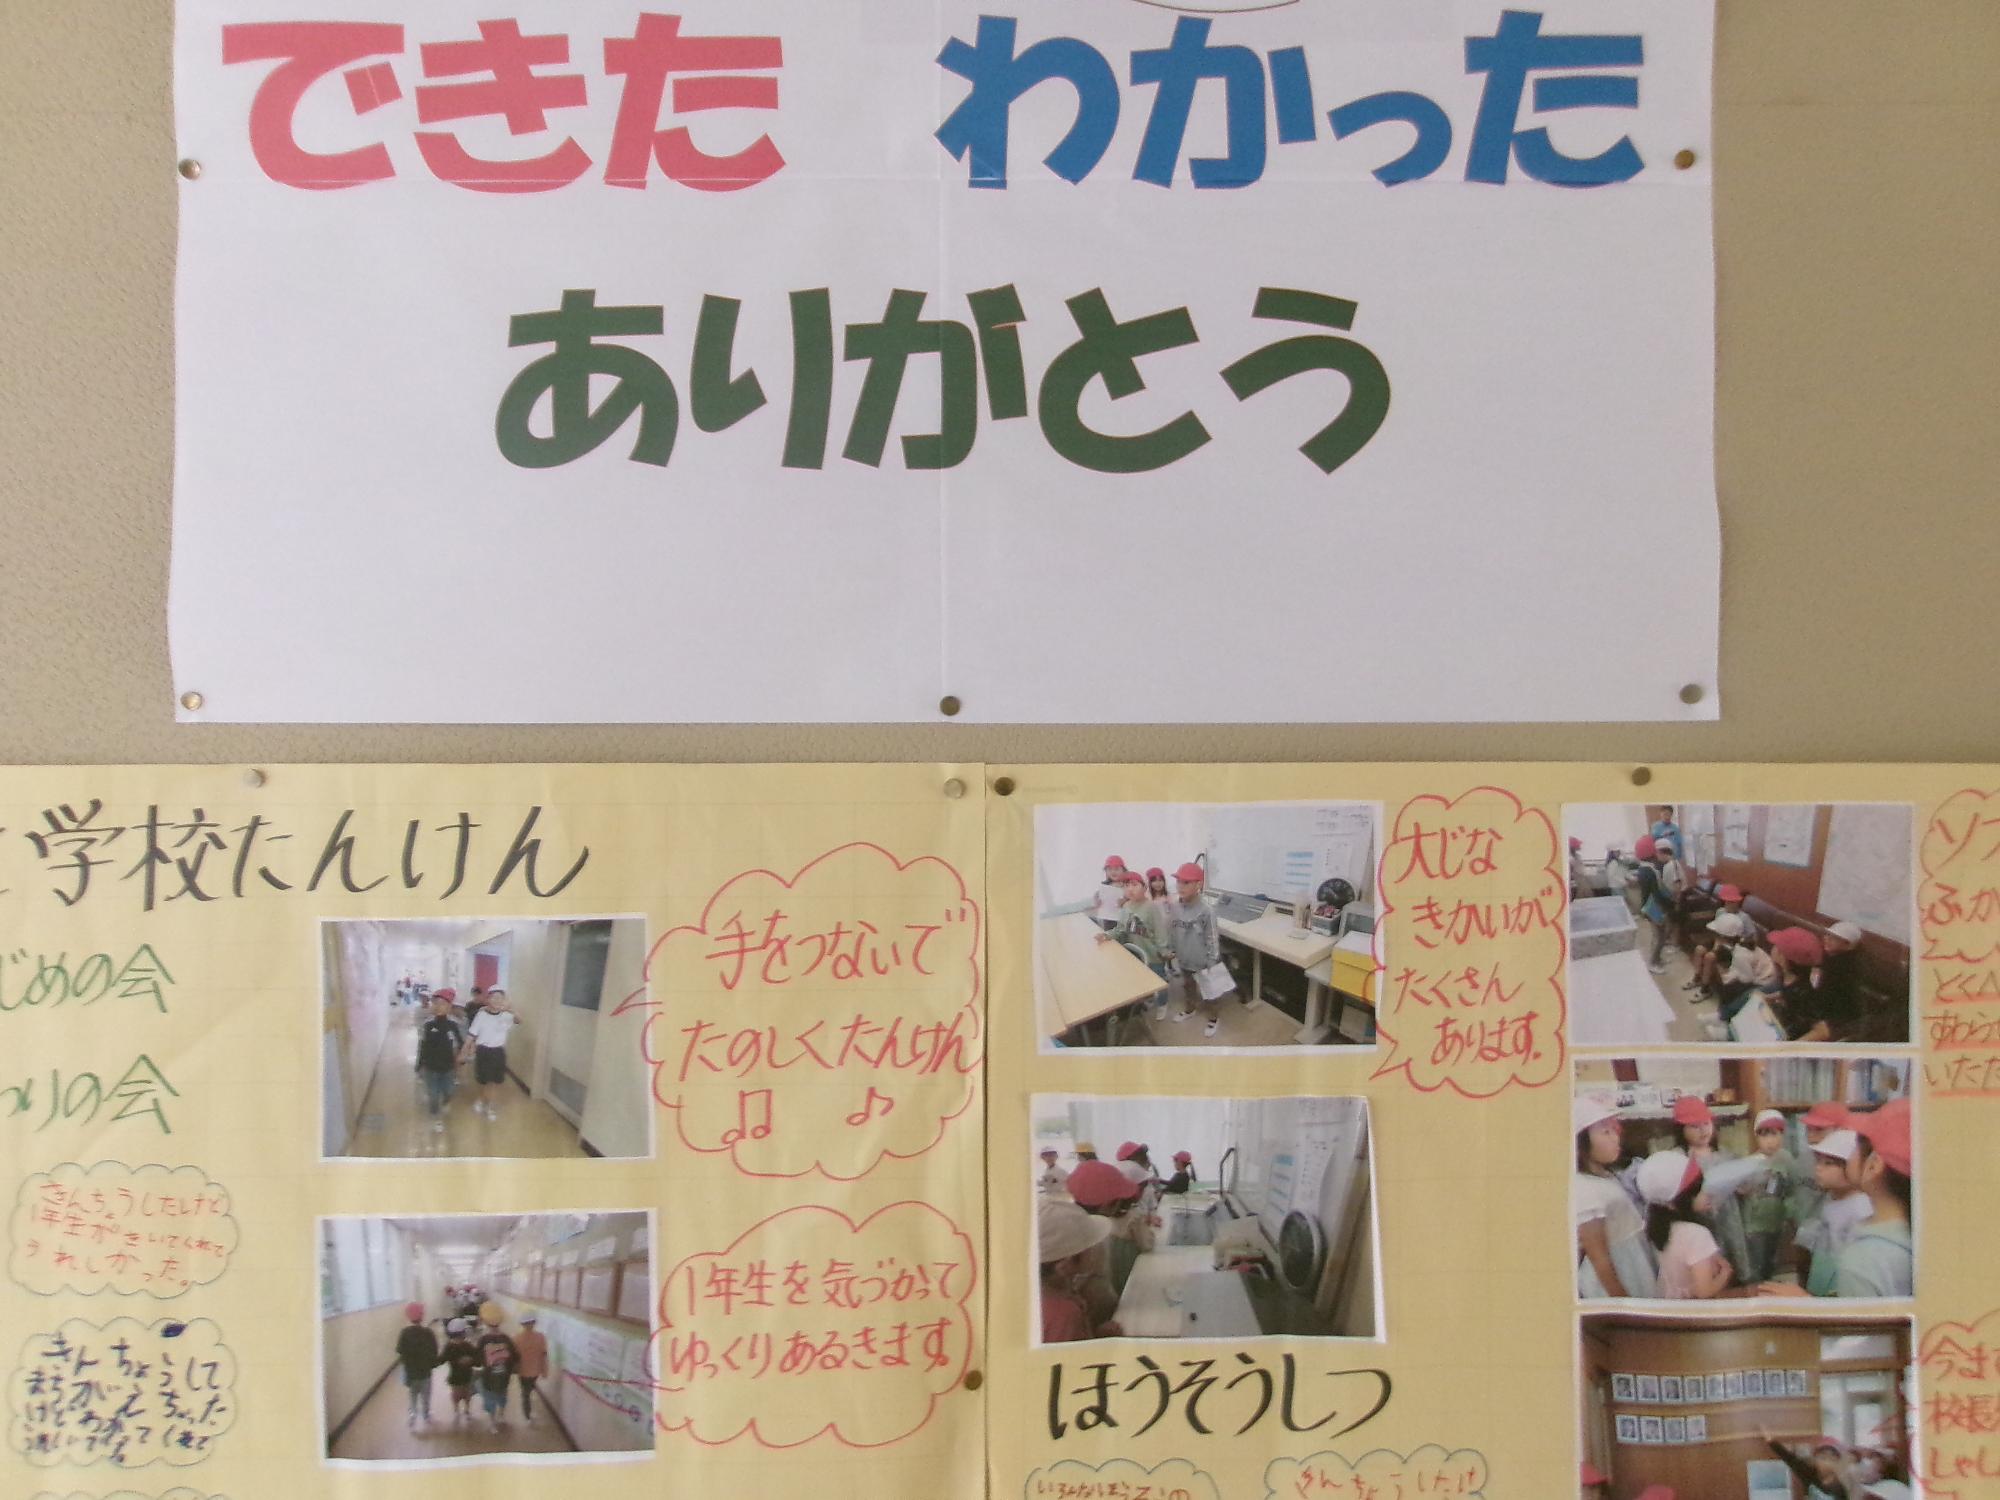 できた わかった
ありがとう
学校たんけん
じめの会
わりの会
手をつないで
たのしくたんけん
1年生を気づかって
ゆっくりあるきます。
きんちょうしたけど
1年生がきいてくれて
うれしかった。
きんちょうして
まちがえちゃった
けど
大じな
きかいが
たくさん
あります。
ほうそうしつ
きんちょうしたけ
ソフ
ふか
とくべ
すわらせ
いただ
今ま
校長
しゃしん